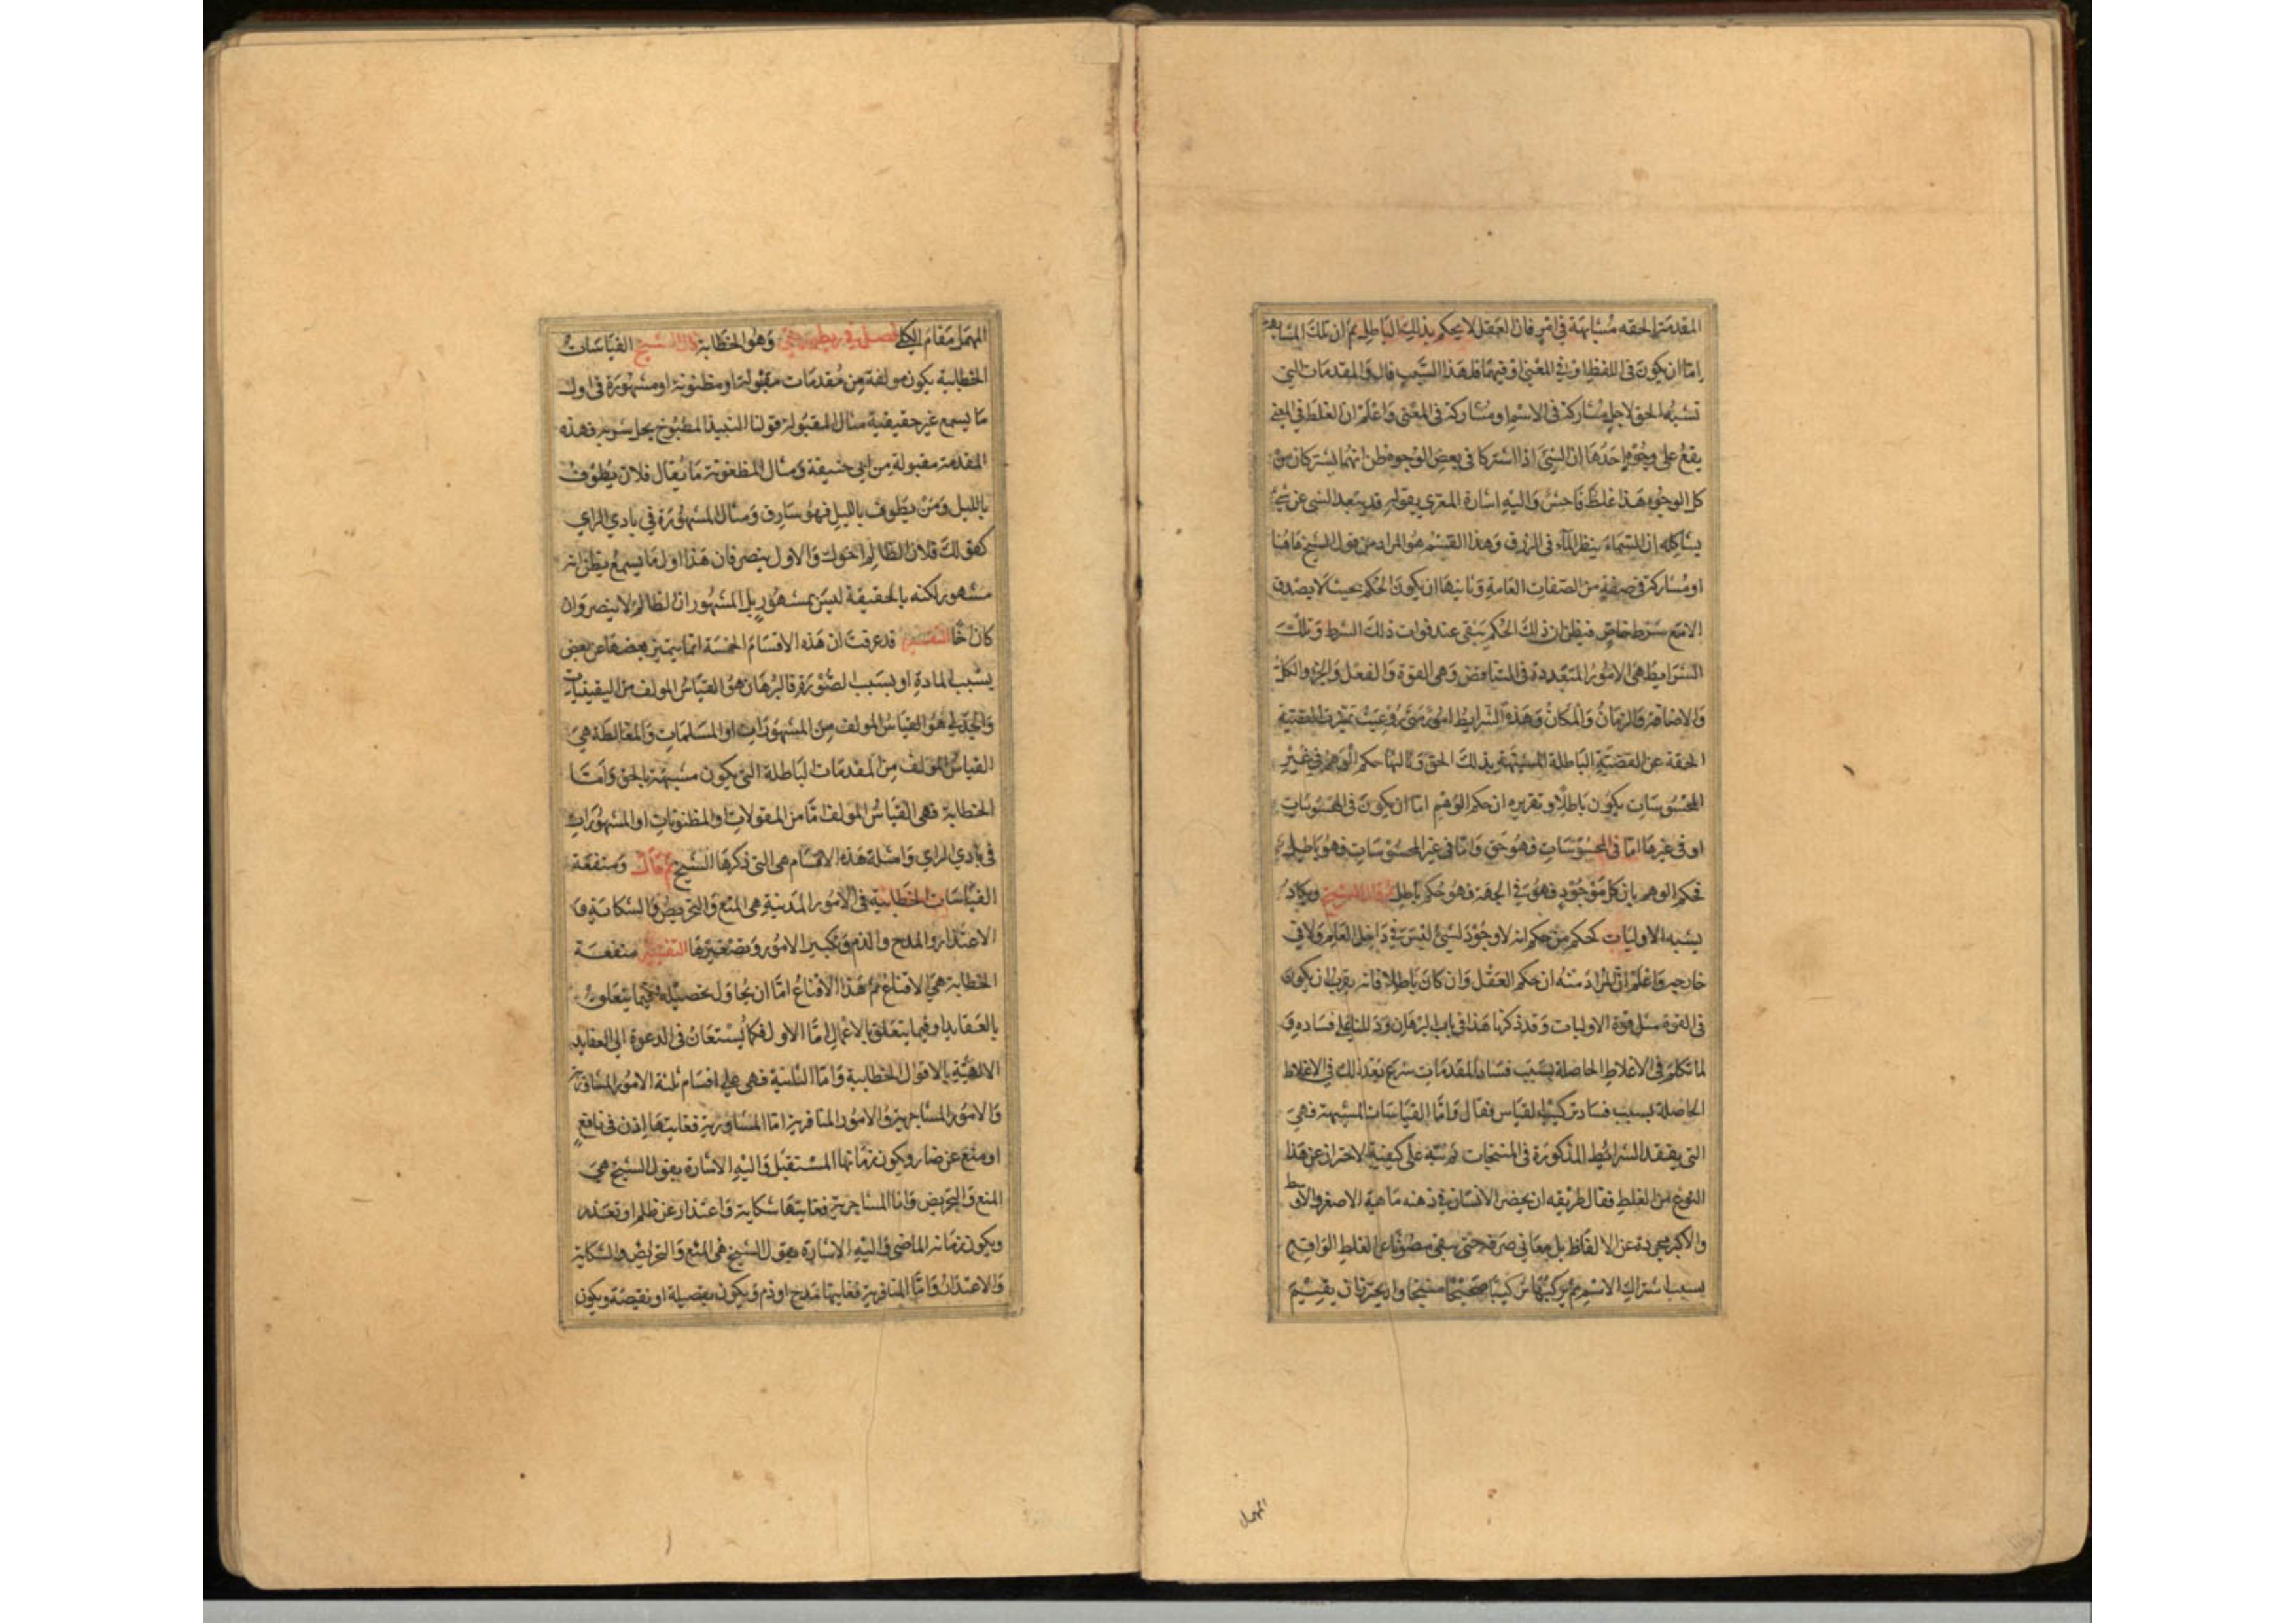 المقدمة الحقه مشابهة في امر فان العقل لا يحكم بذلك الباطل ثم ان تلك المشابهة
اما ان يكون في اللفظ او في المعنى او فيهما فلهذا السبب قال والمقدمات التي
تشبه الحق لاجل مشاركة في الاسم او مشاركة في المعنى واعلم ان الغلط في المعنى
يقع على وجوه احدها ان الشيئ اذا اشتركا في بعض الوجوه فظن انهما يشتركان من
كل الوجوه هذا غلط فاحش واليه اشارة المعرى بقوله قد يبعد الشي عن شيء
يشاكله ان السماء ينظر الماء في الزرق وهذا القسم هو المراد من قول الشيخ هاهنا
او مشاركة في صفة من الصفات العامة وثانيها ان يكون الحكم بحيث لا يصدق
الا مع شرط خاص فيظن ان ذلك الحكم يبقى عند فوات ذلك الشرط وتلك
الشرايط هي الامور المتعددة في المتناقض وهي القوة والفعل والجزء والكل
والاضافة والزمان والمكان وهذه الشرايط امور متى روعيت تميزت القضية
الحقة عن القضية الباطلة المشبهة بذلك الحق وثالثها حكم الوهم في غير
المحسوسات يكون باطلا وتقريره ان حكم الوهم اما ان يكون في المحسوسات
او في غيرها اما في المحسوسات فهو حق واما في غير المحسوسات فهو باطل
فحكم الوهم بان كل موجود فهو في الجهة فهو حكم باطل ثم قال الشيخ ويكاد
يشبه الاوليات كحكم من حكم انه لا وجود لشئ ليس في داخل العالم ولا في
خارجه واعلم ان المراد منه ان حكم العقل وان كان باطلا فانه يقرب ان يكون
في القوة مثل قوة الاوليات وقد ذكرنا هذا في باب البرهان ودللنا على فساده و
لما تكلم في الاغلاط الحاصلة بسبب فساد المقدمات شرع بعد ذلك في الاغلاط
الحاصلة بسبب فساد تركيب القياس فقال واما القياسات المشبهة فهي
التي يفتقد الشرائط المذكورة في المنتجات ثم نبه على كيفية الاحتراز عن هذا
النوع من الغلط فقال طريقه ان يحضر الانسان في ذهنه ماهية الاصغر والاوسط
والاكبر مجردة عن الالفاظ بل معاني صرفة حتى يبقى مصونا عن الغلط الواقع
بسبب اشتراك الاسم ثم يركبها تركيبا صحيحا منتجا وان يحترز ان يقسم
المهمل
المهمل مقام الكلي فصل في ريطوريقي وهو الخطابة قال الشيخ القياسات
الخطابية يكون مولفة من مقدمات مقبولة او مظنونة او مشهورة في اول
ما يسمع غير حقيقية مثال المقبولة قولنا النبيذ المطبوخ يحل شربه فهذه
المقدمة مقبولة من ابي حنيفة ومثال المظنونة ما يقال فلان يطوف
بالليل ومن يطوف بالليل فهو سارق ومثال المشهورة في بادي الراي
كقولك فلان الظالم اخوك والاول ينصر فان هذا اول ما يسمع يظن انه
مشهور لكنه بالحقيقة ليس بمشهور بل المشهور ان الظالم لا ينصر وان
كان اخا التفسير قد عرفت ان هذه الاقسام الخمسة انما يتميز بعضها عن بعض
بسبب المادة او بسبب الصورة فالبرهان هو القياس المولف من اليقينيات
والجدلي هو القياس المولف من المشهورات او المسلمات والمغالطة هي
القياس المولف من المقدمات الباطلة التي يكون مشبهة بالحق واما
الخطابة فهي القياس المولف اما من المقولات او المظنونات او المشهورات
في بادي الراي وامثلة هذه الاقسام هي التي ذكرها الشيخ ثم قال ومنفعة
القياسات الخطابية في الامور المدنية هي المنع والتحريض والشكاية و
الاعتذار والمدح والذم وتكبير الامور وتصغيرها التفسير منفعة
الخطابة هي الاقناع ثم هذا الاقناع اما ان يحاول تحصيله فيما يتعلق
بالعقايد او فيما يتعلق بالاعمال اما الاول فكما يستعان في الدعوة الى العقايد
الالهية بالاقوال الخطابية واما الثانية فهي على اقسام ثلثة الامور المشاورية
والامور المشاجرية والامور المنافرية اما المشاورية فغايتها اذن في نافع
او منع عن ضار ويكون زمانها المستقبل واليه الاشارة بقول الشيخ هي
المنع والتحريض واما المشاجرية فغايتها شكاية واعتذار عن ظلم او تعذر
ويكون زمانه الماضى واليه الاشارة بقول الشيخ هي المنع والتحريض والشكاية
والاعتذار واما المنافرية فغايتها مدح او ذم ويكون بفضيلة او نقيصة ويكون